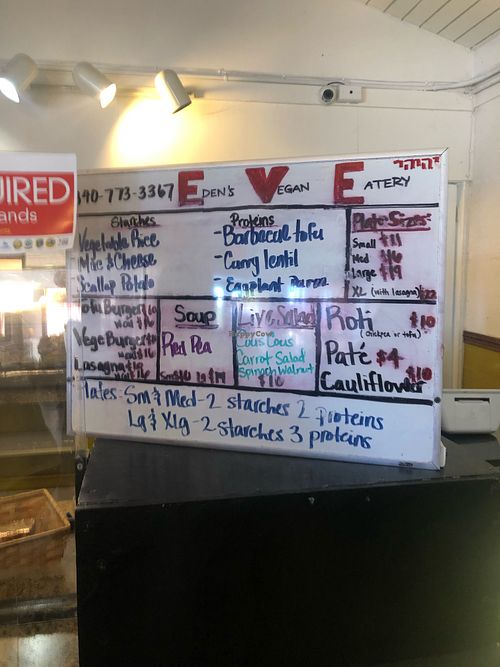 UIRED
ands
40-773-3367 EDEN'S VEGAN EATERY
יהוה
Starches
Vegetable Rice
Mac & Cheese
Scallop Potato
Proteins
-Barbacue tofu
-Curry lentil
-Eggplant Parm
Plate Sizes
Small $11
Med $16
Large $19
XL (with lasagna) $22
Tofu Burger
Vege Burger
Lasagna
Soup
Red Pea
Sm $10 Lg $14
Live Salad
Cous Cous
Carrot Salad
Spinach Walnut
$10
Roti $10
(chickpea or tofu)
Paté $4
Cauliflower $10
Plates-Sm & Med-2 starches 2 proteins
Lg & Xlg-2 starches 3 proteins
HappyCow